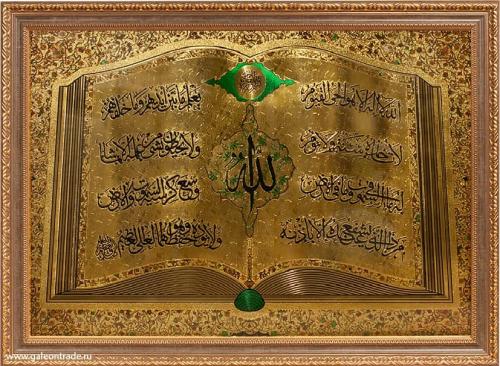 الله
الله لا إله إلا هو الحي القيوم
لا تأخذه سنة ولا نوم
له ما في السموات وما في الأرض
من ذا الذي يشفع عنده إلا بإذنه
يعلم ما بين أيديهم وما خلفهم
ولا يحيطون بشيء من علمه إلا بما شاء
وسع كرسيه السموات والأرض
ولا يؤده حفظهما وهو العلي العظيم
www.galeontrade.ru